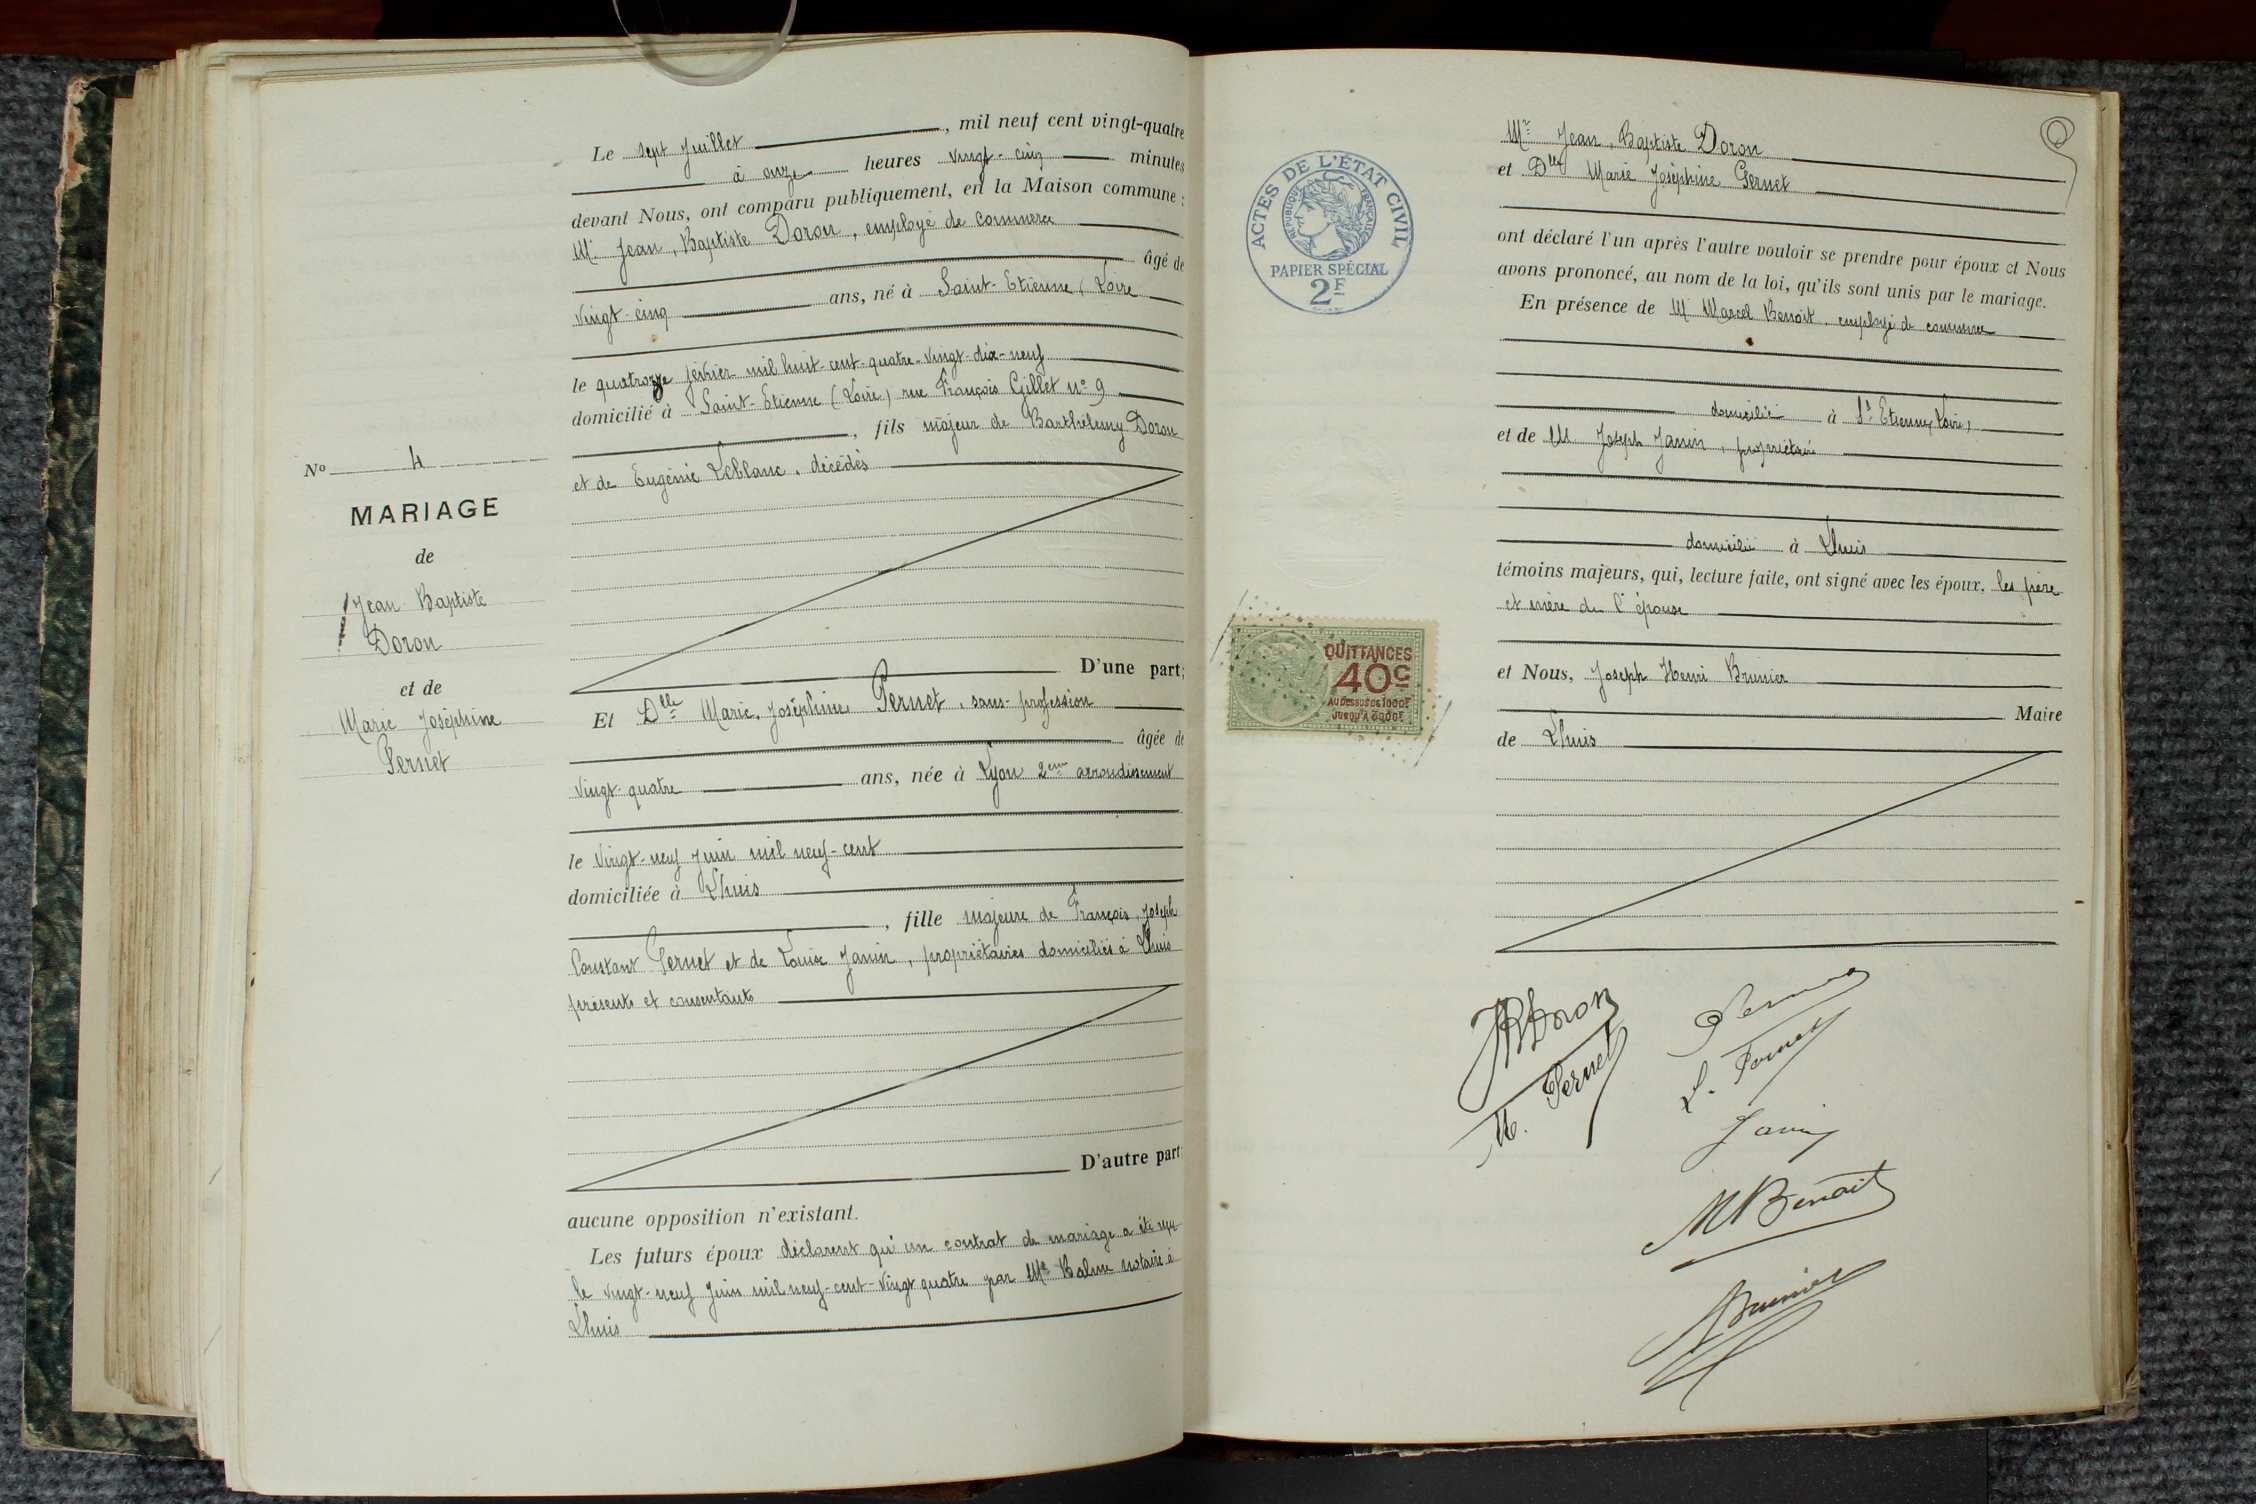 N° 4
MARIAGE
de
Jean Baptiste
Doron
et de
Marie Joséphine
Pernet
Le sept Juillet, mil neuf cent vingt-quatre
à onze heures vingt-cinq minutes
devant Nous, ont comparu publiquement, en la Maison commune :
Mr Jean, Baptiste Doron, employé de commerce
âgé de
vingt-cinq ans, né à Saint-Etienne (Loire
le quatorze février mil huit-cent-quatre-vingt-dix-neuf
domicilié à Saint-Etienne (Loire) rue François Gillet n° 9
, fils majeur de Barthélemy Doron
et de Eugénie Leblanc, décédés
D'une part;
Et Delle Marie, Joséphine Pernet, sans profession
âgée de
vingt-quatre ans, née à Lyon 2eme arrondissement
le vingt-neuf juin mil neuf-cent
domiciliée à Lhuis
, fille majeure de François, Joseph
Constant Pernet et de Louise Janin, propriétaires domiciliés à Lhuis
présents et consentants
D'autre part;
aucune opposition n'existant.
Les futurs époux déclarent qu'un contrat de mariage a été reçu
le vingt-neuf Juin mil neuf-cent-vingt quatre par Me Balme notaire à
Lhuis
ACTES DE L'ÉTAT CIVIL
RÉPUBLIQUE FRANÇAISE
PAPIER SPÉCIAL
2F
QUITTANCES
40c
AU DESSUS DE 1000F
JUSQU'À 3000F
Mr Jean, Baptiste Doron
et Dlle Marie Joséphine Pernet
ont déclaré l'un après l'autre vouloir se prendre pour époux et Nous
avons prononcé, au nom de la loi, qu'ils sont unis par le mariage.
En présence de M Marcel Benoit, employé de commerce
domicilié à St Etienne (Loire)
et de M Joseph Janin, propriétaire
domicilié à Lhuis
témoins majeurs, qui, lecture faite, ont signé avec les époux, les père
et mère de l'épouse
et Nous, Joseph Henri Brunier
Maire
de Lhuis
JB Doron
M. Pernet
Pernet
L. Pernet
Janin
M Benoit
Brunier